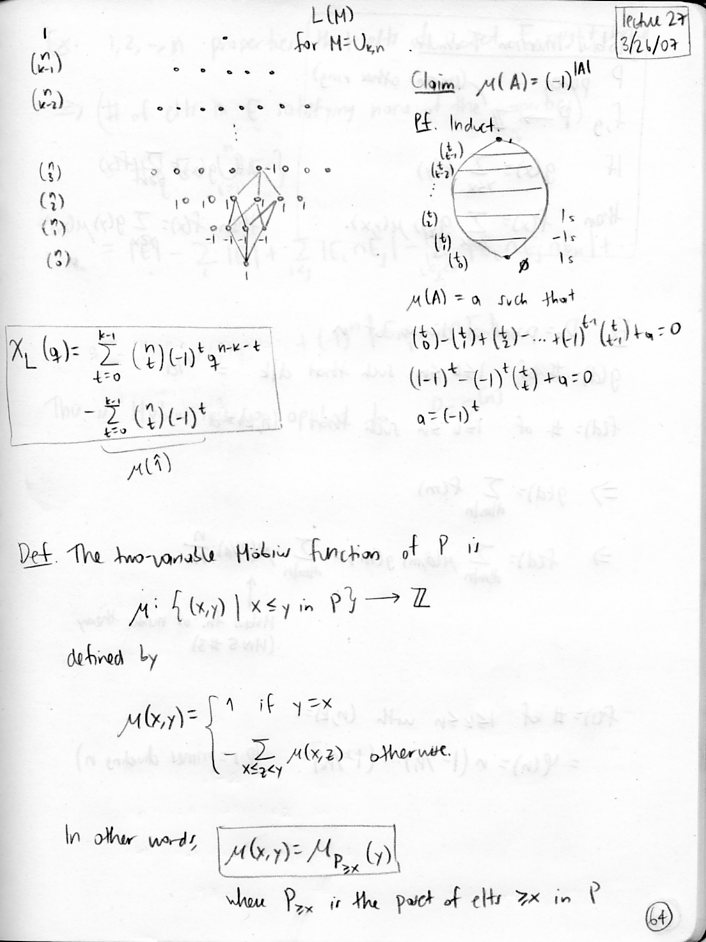 L(M)
for M=U_{k,n}
lecture 27
3/26/07
1
(n k-1)
(n k-2)
⋮
(n 3) -1
(n 2) 1 1 1 1 1
(n 1) -1 -1 -1 -1
(n 0)
1
Claim. μ(A) = (-1)^{|A|}
Pf. Induct.
(t t-1)
(t t-2)
⋮
(t 2) 1s
(t 1) -1s
(t 0) ∅ 1s
μ(A) = a such that
(t 0) - (t 1) + (t 2) - ... + (-1)^{t-1} (t t-1) + a = 0
(1-1)^t - (-1)^t (t t) + a = 0
a = (-1)^t
χ_L(q) = ∑_{t=0}^{k-1} (n t) (-1)^t q^{n-k-t}
- ∑_{t=0}^{k-1} (n t) (-1)^t
μ(1̂)
Def. The two-variable Möbius function of P is
μ: {(x,y) | x ≤ y in P} → ℤ
defined by
μ(x,y) = { 1 if y=x
- ∑_{x≤z<y} μ(x,z) otherwise.
In other words, μ(x,y) = μ_{P≥x}(y)
where P≥x is the poset of elts ≥x in P
64